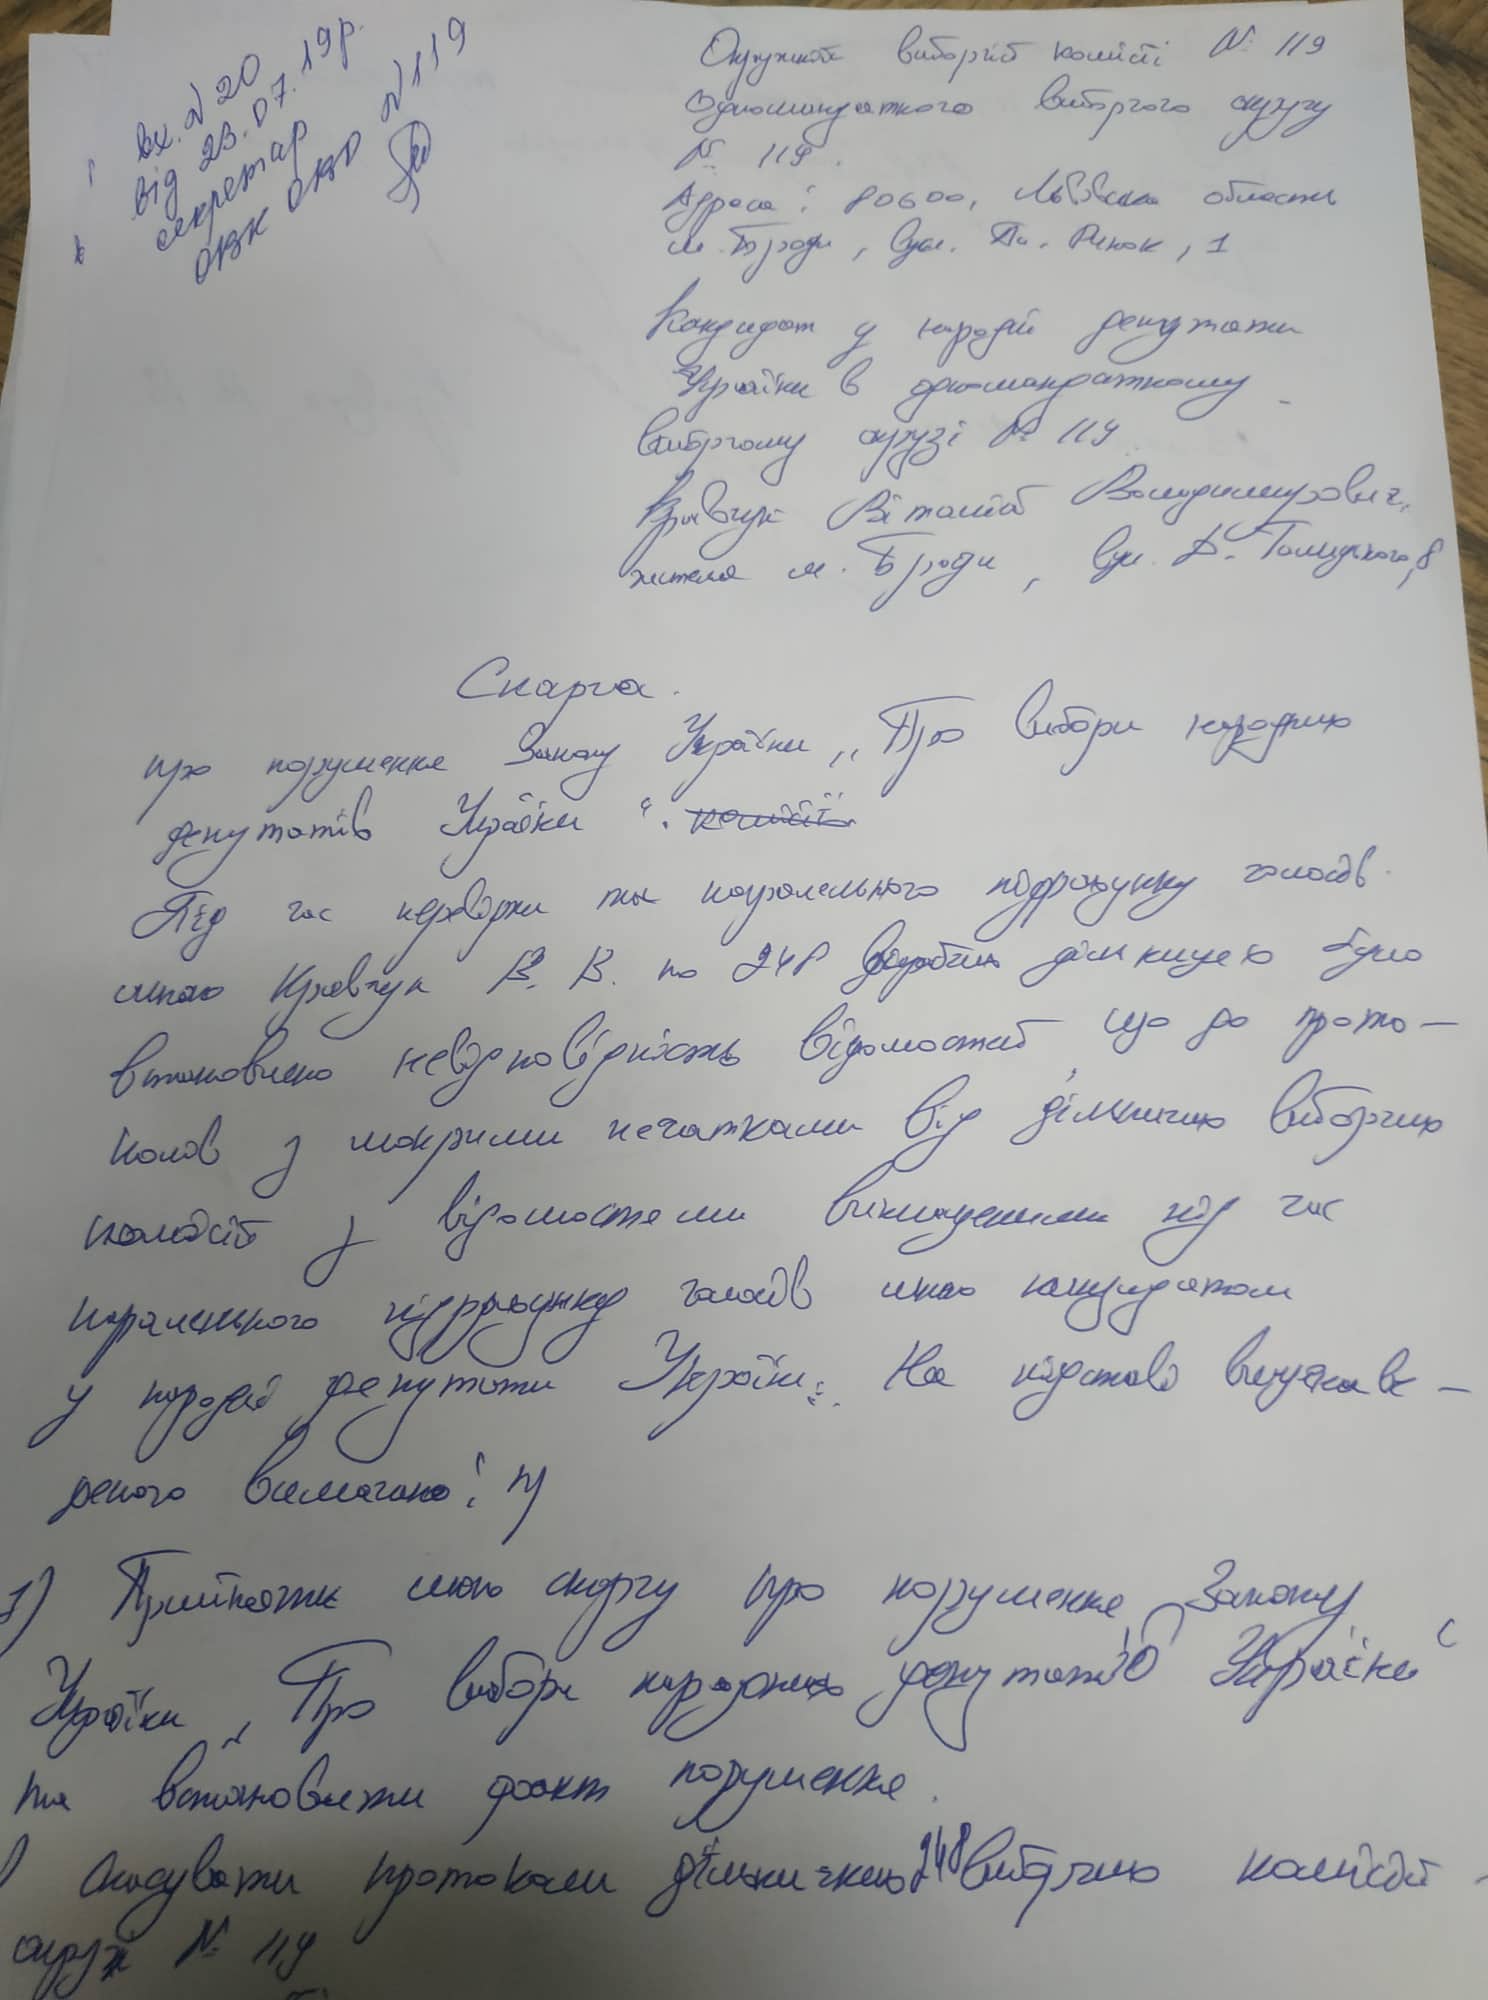 вх. № 20
від 23.07.19р.
секретар
ОВК ОВО №119
Окружній виборчій комісії № 119
Одномандатного виборчого округу
№ 119.
Адреса: 80600, Львівська область
м. Броди, вул. Пл. Ринок, 1
Кандидат у народні депутати
України в одномандатному
виборчому окрузі № 119
Кравчук Віталій Володимирович,
жителя м. Броди, вул. Д. Галицького, 8
Скарга.
про порушення Закону України „Про вибори народних
депутатів України“. комісії
Під час перевірки та паралельного підрахунку голосів
мною Кравчук В. В. по 248 виборчих дільницею було
встановлено невідповідність відомостей, що до прото-
колів з мокрими печатками від дільничних виборчих
комісій з відомостями винайденими під час
паралельного підрахунку голосів мною кандидатом
у народні депутати України. На підставі вищенаве-
деного вимагаю:
1) Прийняти мою скаргу про порушення Закону
України „Про вибори народних депутатів України“
та встановити факт порушення.
) Скасувати протоколи дільничних 248 виборчих комісій
округ № 119